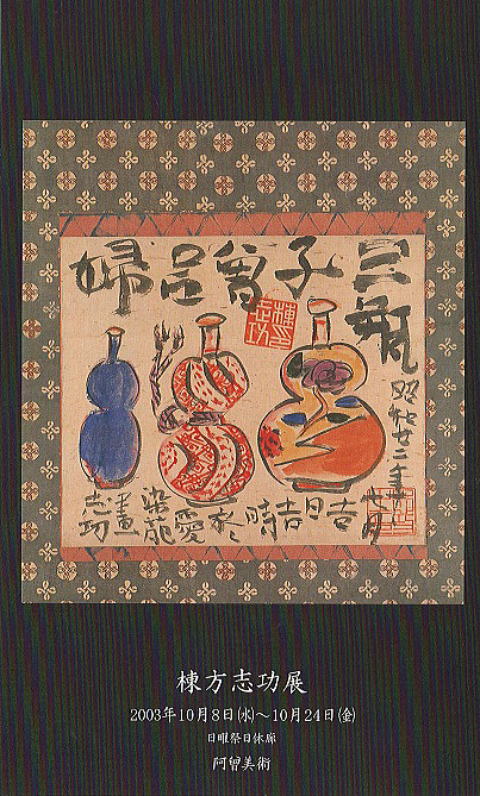 三瓶
子曾呂婦
昭和廿二年
吉日吉時
愛染苑
志功畫
棟方志功展
2003年10月8日㈬～10月24日㈮
日曜祭日休廊
阿曾美術